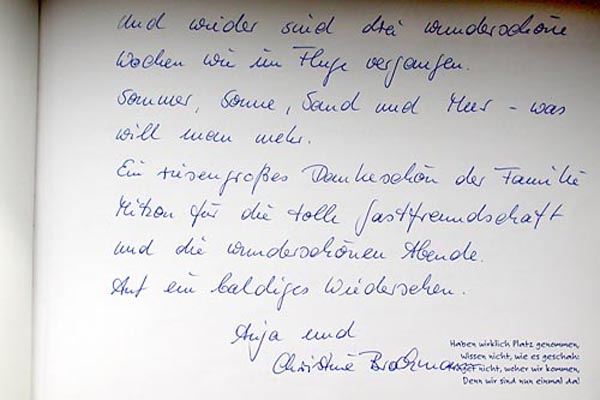 Und wieder sind drei wunderschöne
Wochen wie im Fluge vergangen.
Sommer, Sonne, Sand und Meer - was
will man mehr.
Ein riesengroßes Dankeschön der Familie
Mitzon für die tolle Gastfreundschaft
und die wunderschönen Abende.
Auf ein baldiges Wiedersehen.
Anja und
Christine
Haben wirklich Platz genommen,
Wissen nicht, wie es geschah:
nicht, woher wir kommen,
Denn wir sind nun einmal da!